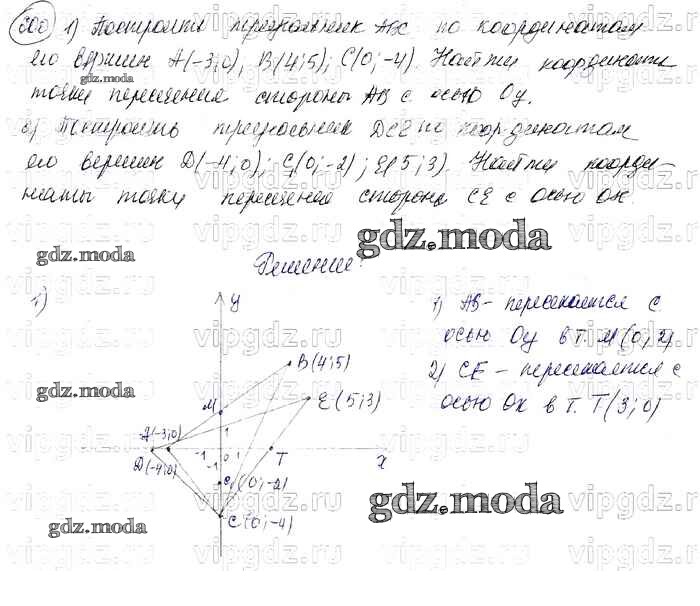 500 1) Построить треугольник ABC по координатам
его вершин A(-3;0), B(4;5), C(0;-4). Найти координаты
gdz.moda
точки пересечения стороны AB с осью Oy.
2) Построить треугольник DCE по координатам
его вершин D(-4;0); C(0;-2); E(5;3). Найти коорди-
наты точки пересечения стороны CE с осью OX.
gdz.moda
gdz.moda
Решение:
1)
y
1) AB - пересекается с
осью Oy в т. M(0;2)
B(4;5)
2) CE - пересекается с
gdz.moda
M
E(5;3)
осью Ox в т. T(3;0)
A(-3;0)
1
-1 0 1
T
x
D(-4;0)
-1
C(0;-2)
gdz.moda
C(0;-4)
gdz.moda
vipgdz.ru